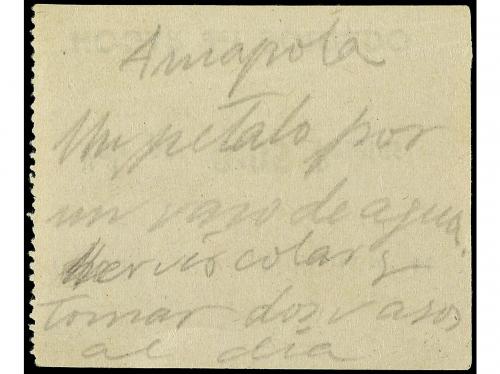 Amapola
Un petalo por
un vaso de agua.
Hervir colar y
tomar dos vasos
al dia